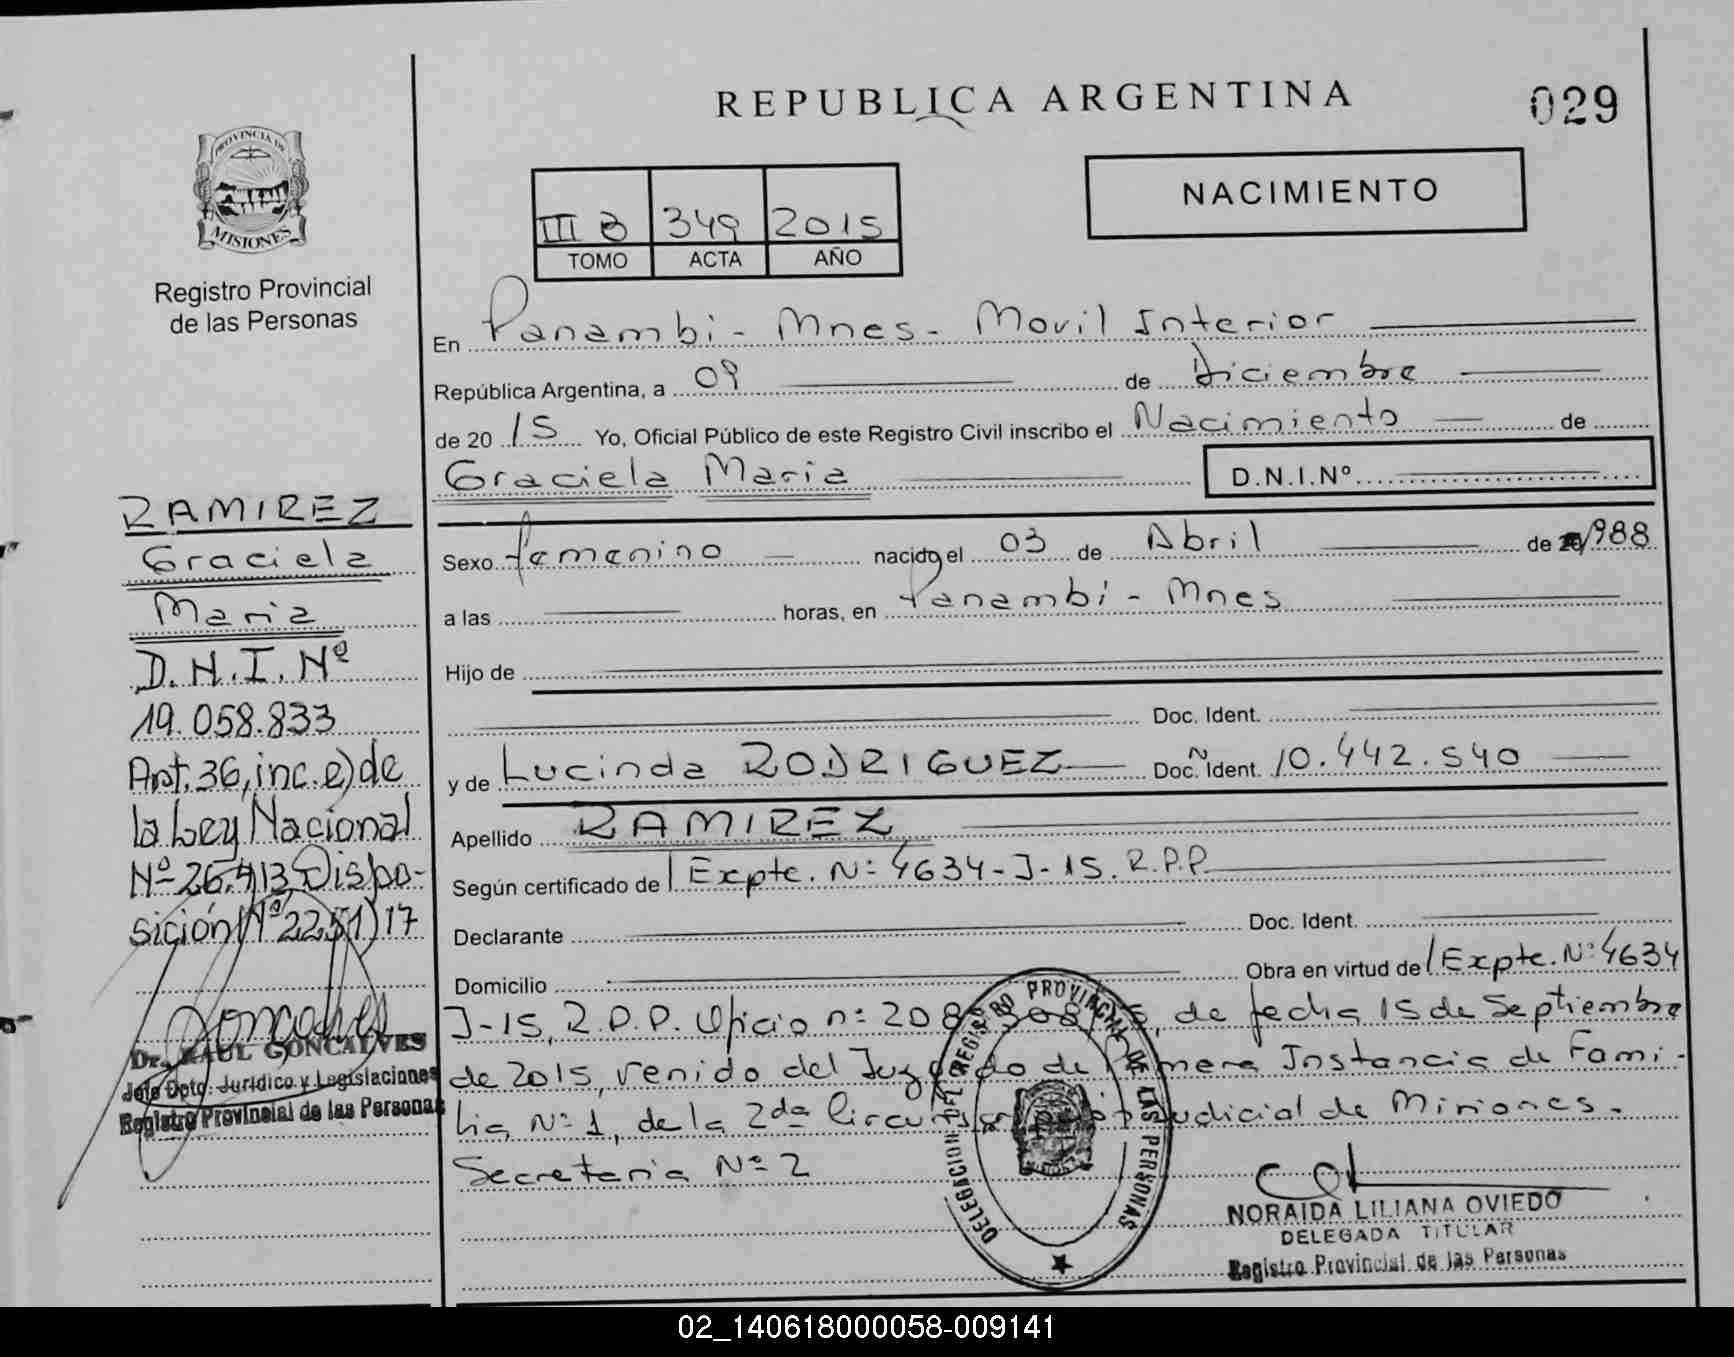 REPUBLICA ARGENTINA
029
PROVINCIA DE
MISIONES
Registro Provincial
de las Personas
NACIMIENTO
III B 349 2015
TOMO ACTA AÑO
En Panambi - Mnes - Movil Interior
República Argentina, a 09 de Diciembre
de 2015 Yo, Oficial Público de este Registro Civil inscribo el Nacimiento de
Graciela Maria D.N.I.Nº
Sexo Femenino nacido el 03 de Abril de 1988
a las horas, en Panambi - Mnes
Hijo de
Doc. Ident.
y de Lucinda RODRIGUEZ Doc. Ident. Nº 10.442.540
Apellido RAMIREZ
Según certificado de Expte. Nº 4634-J-15. R.P.P.
Declarante Doc. Ident.
Domicilio Obra en virtud de Expte. Nº 4634
J-15, R.P.P. Oficio nº de fecha 15 de Septiembre
de 2015, venido del Juzgado de Primera Instancia de Fami-
lia Nº 1, de la 2da Circunscripción Judicial de Misiones.
Secretaria Nº 2
RAMIREZ
Graciela
Maria
D.N.I. Nº
19.058.833
Art. 36, inc. e) de
la Ley Nacional
Nº 26.413 Dispo-
sición Nº 2251/17
Goncalves
Dr. RAUL GONCALVES
Jefe Dpto. Jurídico y Legislaciones
Registro Provincial de las Personas
DELEGACION DEL REGISTRO PROVINCIAL DE LAS PERSONAS
NORAIDA LILIANA OVIEDO
DELEGADA TITULAR
Registro Provincial de las Personas
02_140618000058-009141